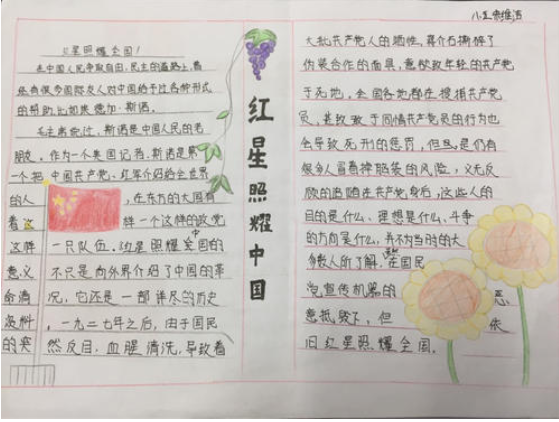 八.五 宋维洁
红星照耀中国
红星照耀全国!
在中国人民争取自由、民主的道路上，有
很多国际友人对中国给予过各种形式
的帮助比如埃德加·斯诺。
毛主席说过，斯诺是中国人民的老
朋友。作为一个美国记者，斯诺是第
一个把中国共产党、红军介绍给全世界
的人，在东方的大国有
着这样一个这样的政党
这样一只队伍。红星照耀全国的
意义不只是向外界介绍了中国的革
命情况，它还是一部详尽的历史
资料，一九二七年之后，由于国民
的突然反目，血腥清洗，导致着
大批共产党人的牺牲，蒋介石撕碎了
伪装合作的面具，意欲致年轻的共产党
于死地，全国各地都在搜捕共产党
员，甚致敢于同情共产党员的行为也
会导致死刑的惩罚，但且是仍有
很多人冒着掉脑袋的风险，义无反
顾的追随在共产党身后，这些人的
目的是什么、理想是什么、斗争
的方向是什么，并不为当时的大
多数人所了解，在国民
党宣传机器的恶
意抵毁下，但依
旧红星照耀全国。